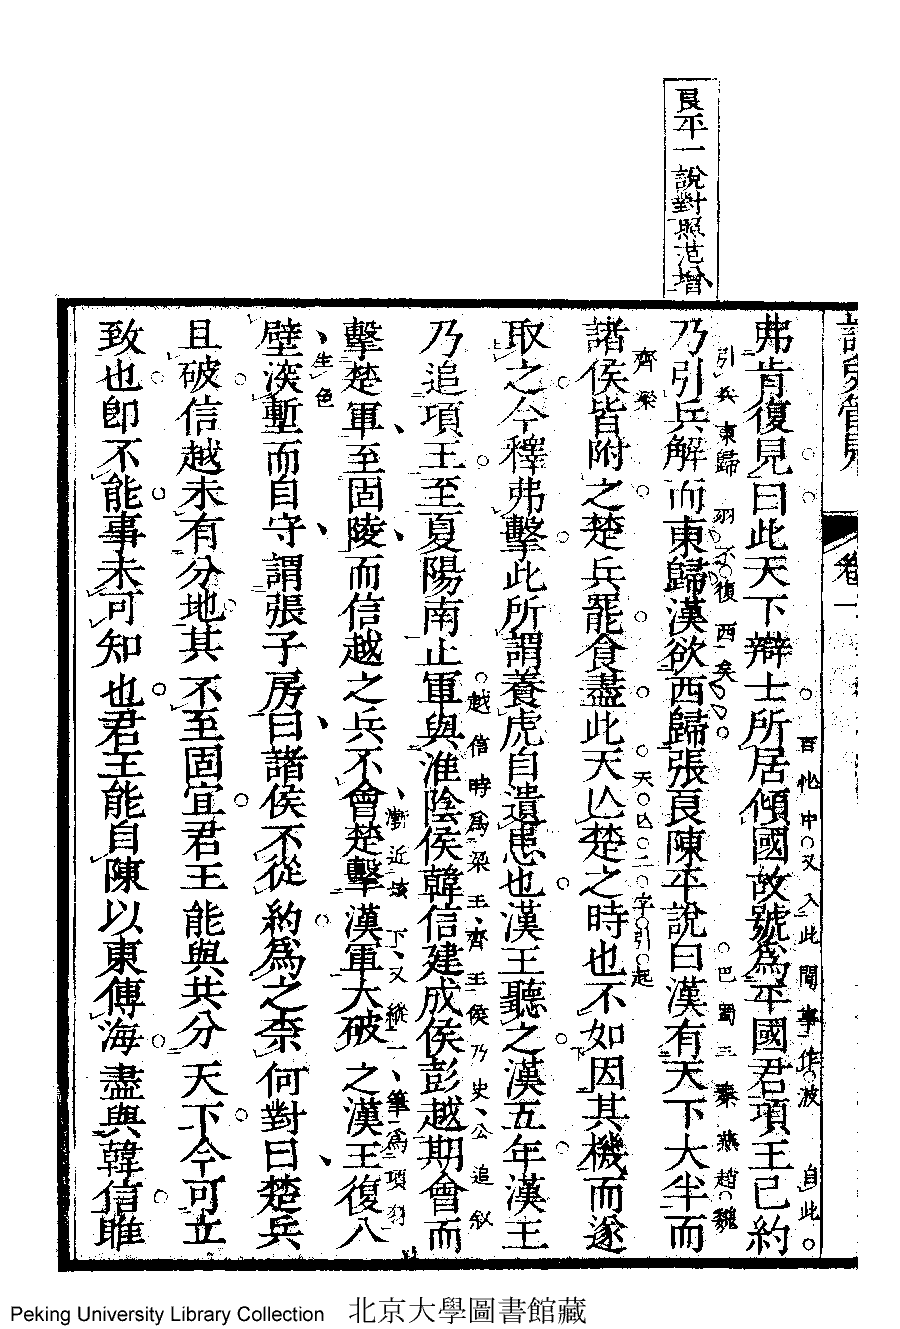 良平一說對照范增
卷一
弗肯復見曰此天下辯士所居傾國故號爲平國君項王已約
百忙中又入此閒事作波
自此
引兵東歸羽不復西矣
乃引兵解而東歸漢欲西歸張良陳平說曰漢有天下大半而
巴蜀三秦燕趙魏
齊梁
諸侯皆附之楚兵罷食盡此天亡楚之時也不如因其機而遂
天亡二字引起
取之今釋弗擊此所謂養虎自遺患也漢王聽之漢五年漢王
乃追項王至夏陽南止軍與淮陰侯韓信建成侯彭越期會而
越信時爲梁王齊王侯乃史公追叙
擊楚軍至固陵而信越之兵不會楚擊漢軍大破之漢王復入
漸近垓下又縱一筆爲項羽
生色
壁深塹而自守謂張子房曰諸侯不從約爲之柰何對曰楚兵
且破信越未有分地其不至固宜君王能與共分天下今可立
致也卽不能事未可知也君王能自陳以東傅海盡與韓信睢
Peking University Library Collection 北京大學圖書館藏